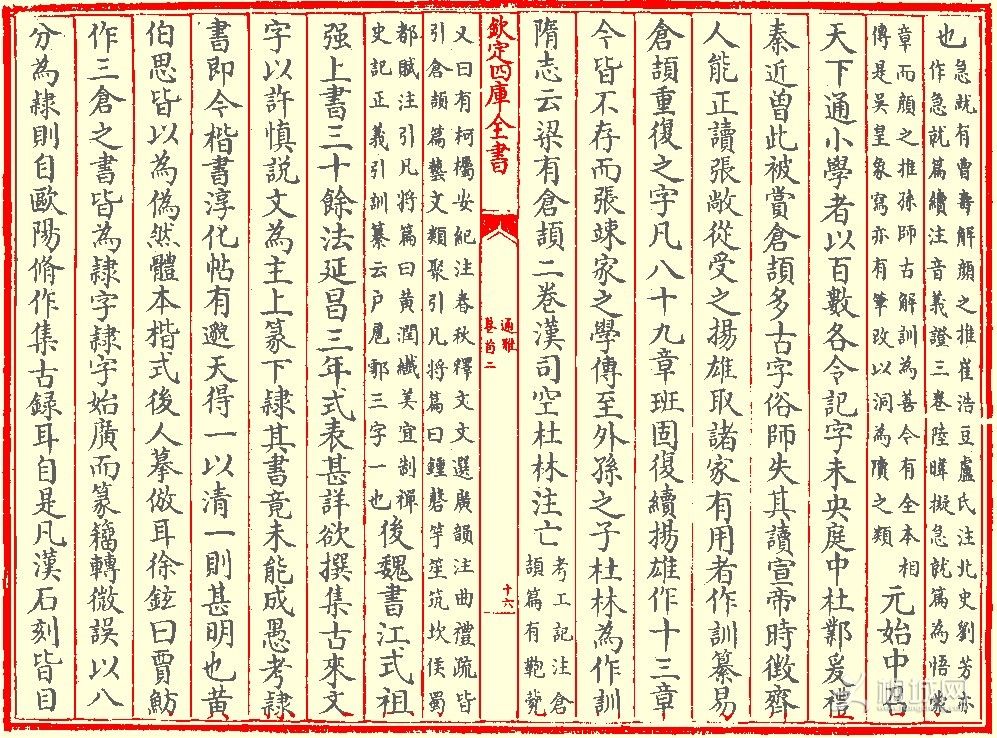 也急就有曹壽解顔之推崔浩豆盧氏注北史劉芳亦
作急就篇續注音義證三巻陸暐擬急就篇為悟蒙
章而顔之推孫師古解訓為善今有全本相
傳是吳皇象寫亦有筆改以洞為隤之類元始中召
天下通小學者以百數各令記字未央庭中杜鄴爰禮
秦近曾此被賞倉頡多古字俗師失其讀宣帝時徴齊
人能正讀張敞從受之揚雄取諸家有用者作訓纂易
倉頡重復之字凡八十九章班固復續揚雄作十三章
今皆不存而張竦家之學傳至外孫之子杜林為作訓
隋志云梁有倉頡二巻漢司空杜林注亡考工記注倉
頡篇有鞄㼱
欽定四庫全書
通雅
巻首二
十六
又曰有柯欘安紀注春秋釋文文選廣韻注曲禮疏皆
引倉頡篇藝文類聚引凡將篇曰鍾磬竽笙筑坎侯蜀
都賦注引凡將篇曰黄潤纖美宜制禪
史記正義引訓纂云戸扈鄠三字一也後魏書江式祖
强上書三十餘法延昌三年式表甚詳欲撰集古來文
字以許慎説文為主上篆下隷其書竟未能成愚考隷
書即今楷書淳化帖有邈天得一以清一則甚明也黄
伯思皆以為偽然體本楷式後人摹倣耳徐鉉曰賈魴
作三倉之書皆為隷字隷字始廣而篆籀轉微誤以八
分為隷則自歐陽脩作集古録耳自是凡漢石刻皆目